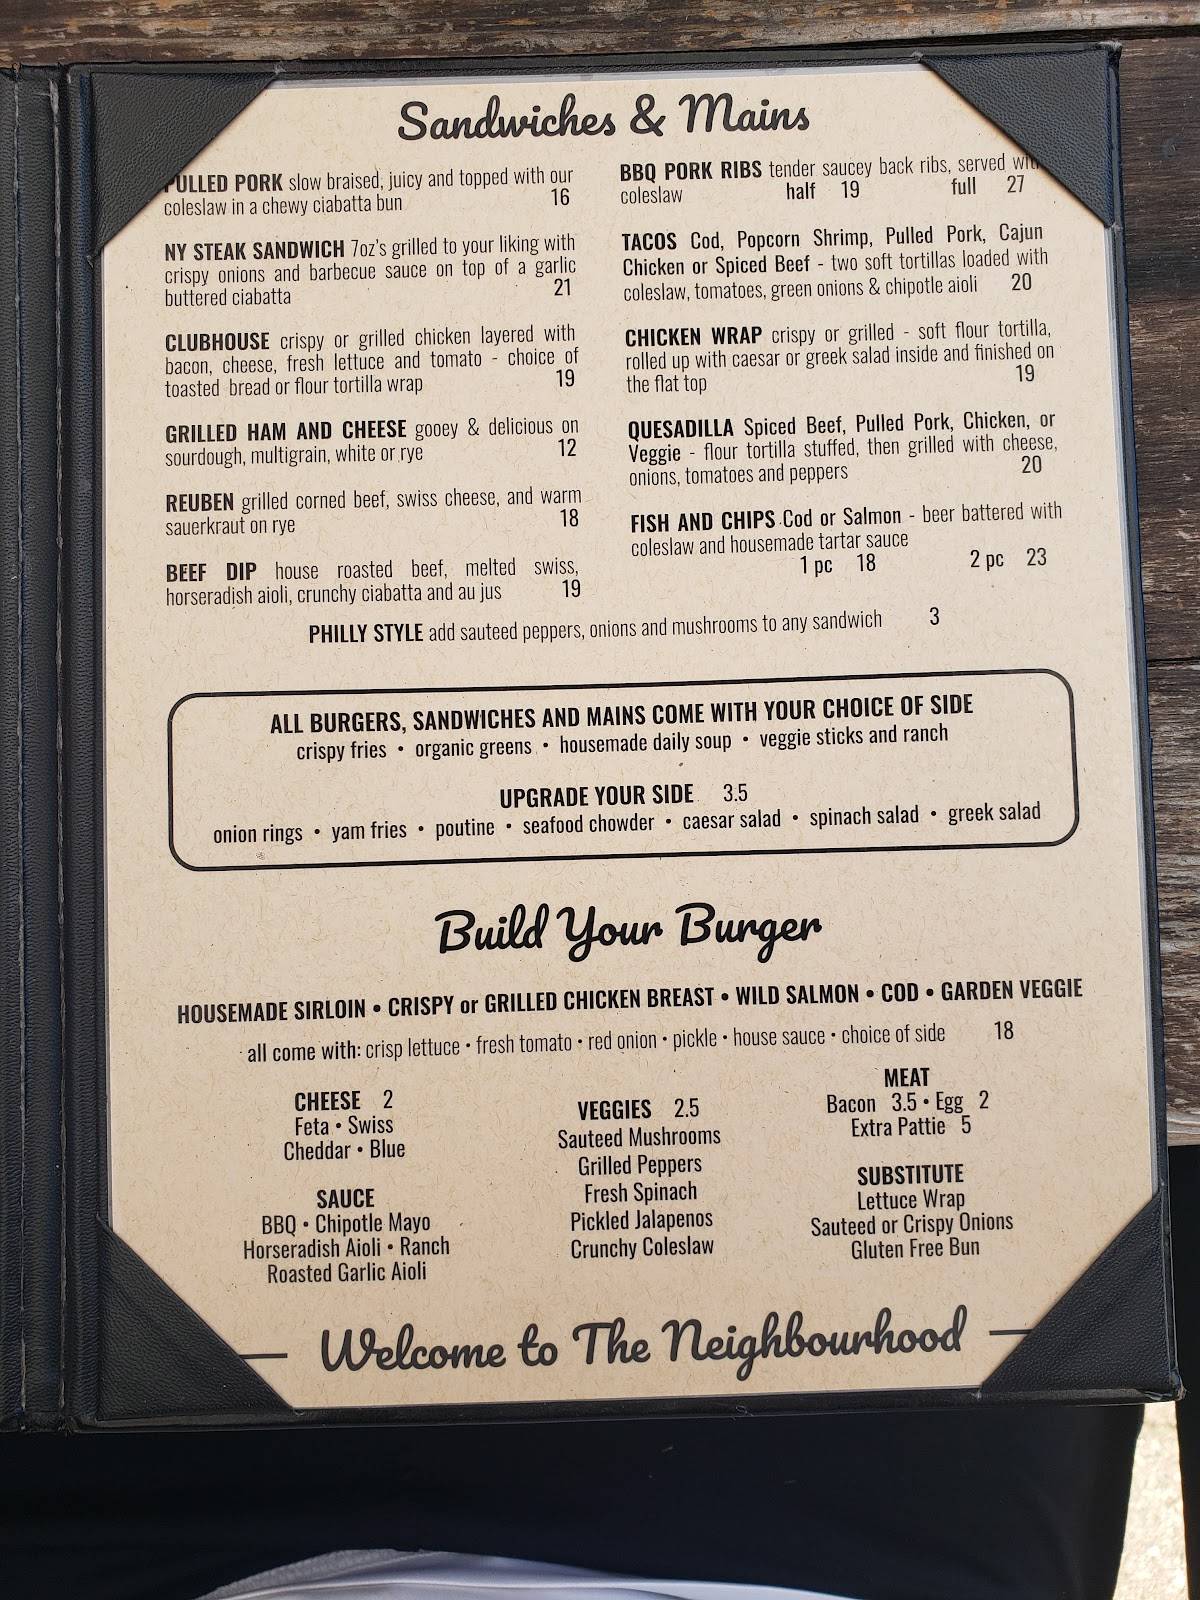 Sandwiches & Mains
PULLED PORK slow braised, juicy and topped with our
coleslaw in a chewy ciabatta bun 16
NY STEAK SANDWICH 7oz's grilled to your liking with
crispy onions and barbecue sauce on top of a garlic
buttered ciabatta 21
CLUBHOUSE crispy or grilled chicken layered with
bacon, cheese, fresh lettuce and tomato - choice of
toasted bread or flour tortilla wrap 19
GRILLED HAM AND CHEESE gooey & delicious on
sourdough, multigrain, white or rye 12
REUBEN grilled corned beef, swiss cheese, and warm
sauerkraut on rye 18
BEEF DIP house roasted beef, melted swiss,
horseradish aioli, crunchy ciabatta and au jus 19
BBQ PORK RIBS tender saucey back ribs, served with
coleslaw half 19 full 27
TACOS Cod, Popcorn Shrimp, Pulled Pork, Cajun
Chicken or Spiced Beef - two soft tortillas loaded with
coleslaw, tomatoes, green onions & chipotle aioli 20
CHICKEN WRAP crispy or grilled - soft flour tortilla,
rolled up with caesar or greek salad inside and finished on
the flat top 19
QUESADILLA Spiced Beef, Pulled Pork, Chicken, or
Veggie - flour tortilla stuffed, then grilled with cheese,
onions, tomatoes and peppers 20
FISH AND CHIPS Cod or Salmon - beer battered with
coleslaw and housemade tartar sauce
1 pc 18 2 pc 23
PHILLY STYLE add sauteed peppers, onions and mushrooms to any sandwich 3
ALL BURGERS, SANDWICHES AND MAINS COME WITH YOUR CHOICE OF SIDE
crispy fries • organic greens • housemade daily soup • veggie sticks and ranch
UPGRADE YOUR SIDE 3.5
onion rings • yam fries • poutine • seafood chowder • caesar salad • spinach salad • greek salad
Build Your Burger
HOUSEMADE SIRLOIN • CRISPY or GRILLED CHICKEN BREAST • WILD SALMON • COD • GARDEN VEGGIE
all come with: crisp lettuce • fresh tomato • red onion • pickle • house sauce • choice of side 18
CHEESE 2
Feta • Swiss
Cheddar • Blue
SAUCE
BBQ • Chipotle Mayo
Horseradish Aioli • Ranch
Roasted Garlic Aioli
VEGGIES 2.5
Sauteed Mushrooms
Grilled Peppers
Fresh Spinach
Pickled Jalapenos
Crunchy Coleslaw
MEAT
Bacon 3.5 • Egg 2
Extra Pattie 5
SUBSTITUTE
Lettuce Wrap
Sauteed or Crispy Onions
Gluten Free Bun
Welcome to The Neighbourhood